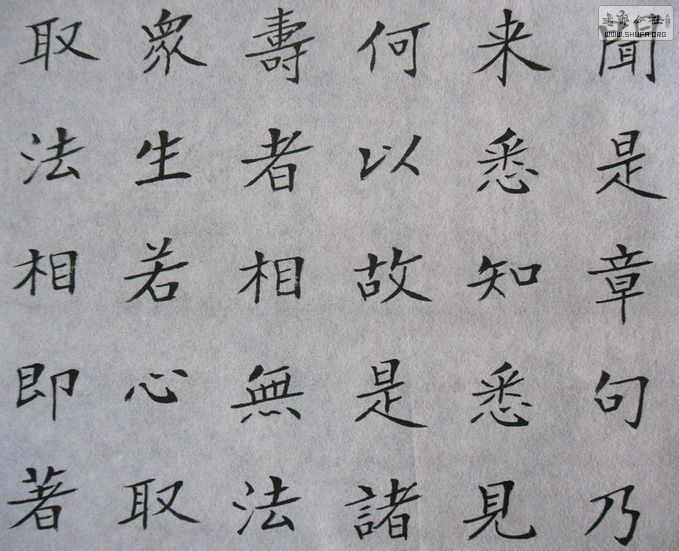 聞是章句乃
来悉知悉見
何以故是諸
壽者相無法
衆生若心取
取法相即著
WWW.SHUFA.ORG